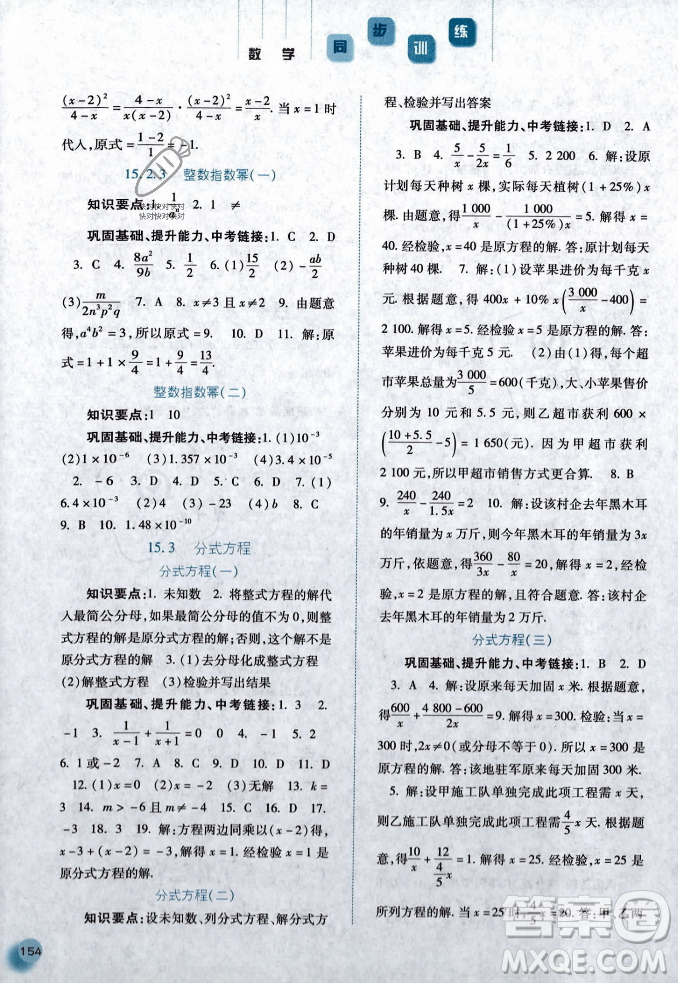 数 学 同 步 训 练
(x-2)²/(4-x) = (4-x)/(x(x-2)) · (x-2)²/(4-x) = (x-2)/x. 当 x=1 时
代人,原式=(1-2)/1=-1.
15.2.3 整数指数幂(一)
知识要点:1. 1/aⁿ 2. 1 ≠
快对快对快对
快对快对快对
巩固基础、提升能力、中考链接:1. C 2. D
3. C 4. 8a²/9b 5. B 6. (1) (2)-ab/2
(3) m/(2n³p²q) 7. A 8. x≠3 且 x≠2 9. 由题意
得,a⁴b²=3,所以原式=9. 10. D 11. 解:原
式=1+1×9/4=1+9/4=13/4.
整数指数幂(二)
知识要点:1 10
巩固基础、提升能力、中考链接:1. (1)10⁻³
(2)1×10⁻⁶ (3)1.357×10⁻³ (4)3.25×10⁻⁵
2. (1)0.000 02 (2)-23 3. C 4. D 5. (1)
6.4×10⁻³ (2)-0.000 021 6. C 7. C 8. C
9. B 10. 1.48×10⁻¹⁰
15.3 分式方程
分式方程(一)
知识要点:1. 未知数 2. 将整式方程的解代
入最简公分母,如果最简公分母的值不为 0,则整
式方程的解是原分式方程的解;否则,这个解不是
原分式方程的解 3. (1)去分母化成整式方程
(2)解整式方程 (3)检验并写出结果
巩固基础、提升能力、中考链接:1. 3 2.
-1 3. 1/(x-1)+1/(x+1)=0 0 4. -1 5. B
6. 1或-2 7. A 8. C 9. D 10. D 11. A
12. (1)x=0 (2)x=-2 (3)无解 13. k=
3 14. m>-6 且 m≠-4 15. A 16. D
17. B 18. C 19. 解:方程两边同乘以(x-2)得,
x-3+(x-2)=-3. 解得 x=1. 经检验 x=1 是
原分式方程的解.
分式方程(二)
知识要点:设未知数、列分式方程、解分式方
154
程、检验并写出答案
巩固基础、提升能力、中考链接:1. D 2. A
3. B 4. 5/x-5/2x=1/6 5. 2 200 6. 解:设原
计划每天种树 x 棵,实际每天植树(1+25%)x
棵. 由题意,得1 000/x-1 000/((1+25%)x)=5. 解得 x=
40. 经检验,x=40 是原方程的解. 答:原计划每天
种树 40 棵. 7. 解:(1)设苹果进价为每千克 x
元. 由题意,得 400x+10%x(3 000/x-400)=
2 100. 解得 x=5. 经检验 x=5 是原方程的解. 答:
苹果进价为每千克 5 元. (2)由(1)得,每个超
市苹果总量为3 000/5=600(千克),大、小苹果售价
分别为 10 元和 5.5 元,则乙超市获利 600×
((10+5.5)/2-5)=1 650(元). 因为甲超市获利
2 100元,所以甲超市销售方式更合算. 8. B
9. 240/x-240/1.5x=2 10. 解:设该村企去年黑木耳
的年销量为 x 万斤,则今年黑木耳的年销量为 3x
万斤. 依题意,得360/3x-80/x=20. 解得 x=2. 经检
验,x=2 是原方程的解,且符合题意. 答:该村企
去年黑木耳的年销量为 2 万斤.
分式方程(三)
巩固基础、提升能力、中考链接:1. B 2. D
3. A 4. 解:设原来每天加固 x 米. 根据题意,
得600/x+(4 800-600)/2x=9. 解得 x=300. 检验:当 x=
300 时,2x≠0(或分母不等于 0),所以 x=300 是
原方程的解. 答:该地驻军原来每天加固 300 米.
5. 解:设甲施工队单独完成此项工程需 x 天,
则乙施工队单独完成此项工程需4/5x天. 根据题
意,得10/x+12/(4/5x)=1. 解得 x=25. 经检验,x=25 是
所列方程的解. 当 x=25 时,4/5x=20. 答:甲、乙两
作业精灵
MXQE.COM